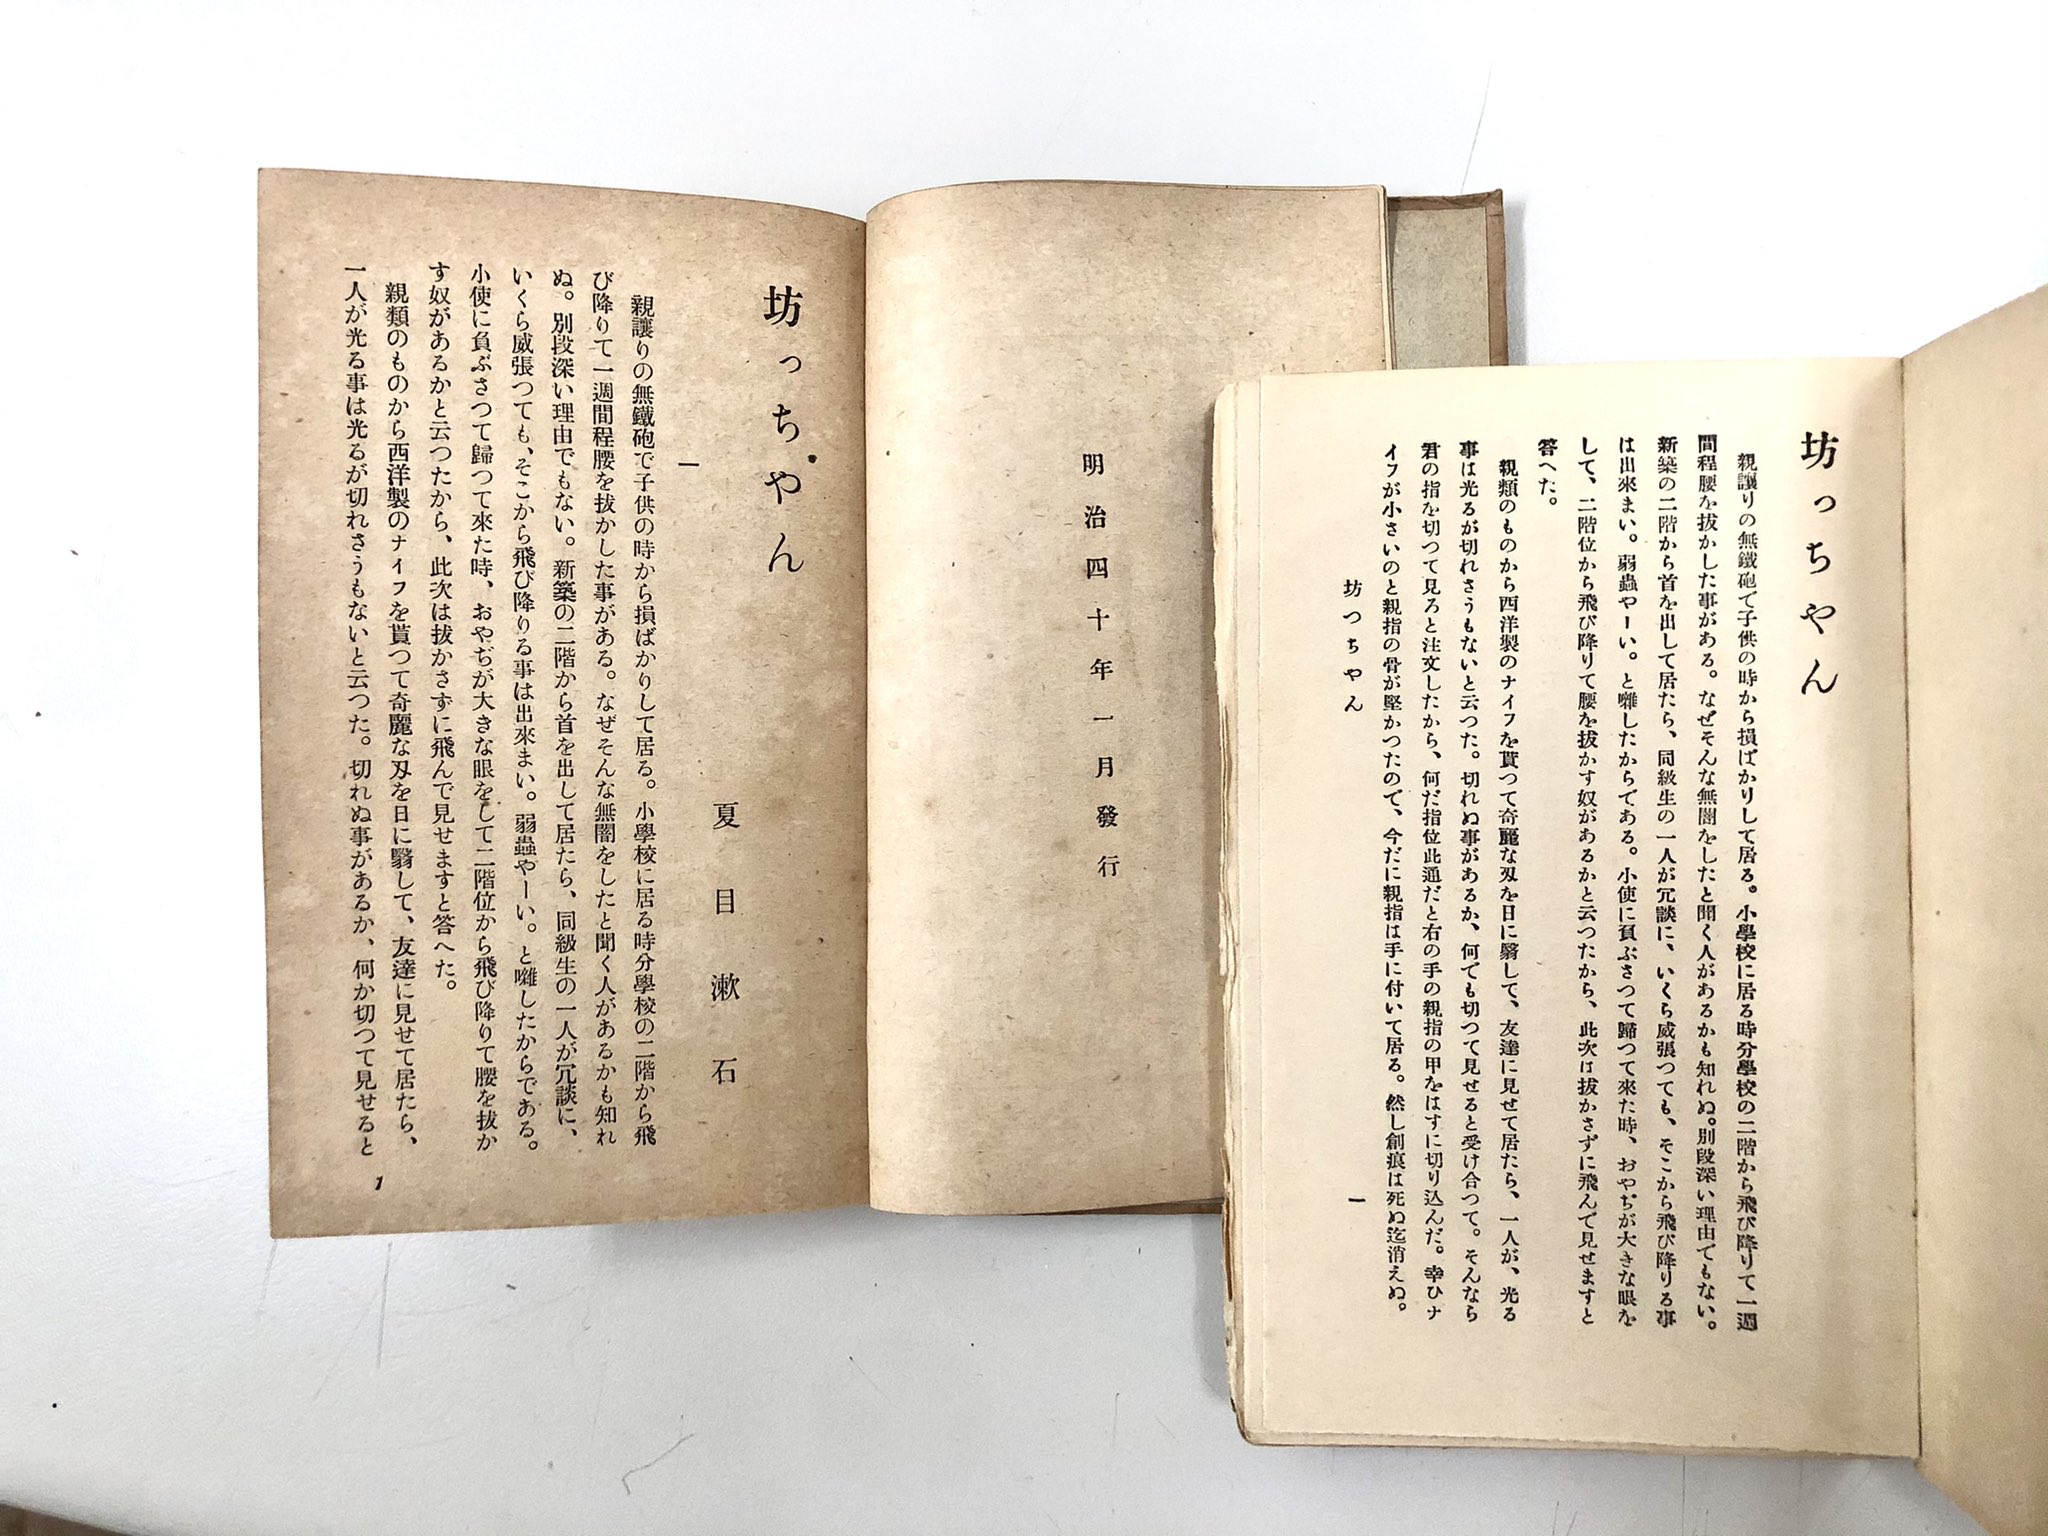 明治四十年一月發行
坊っちやん
夏目漱石
一
親讓りの無鐵砲で子供の時から損ばかりして居る。小學校に居る時分學校の二階から飛
び降りて一週間程腰を拔かした事がある。なぜそんな無闇をしたと聞く人があるかも知れ
ぬ。別段深い理由でもない。新築の二階から首を出して居たら、同級生の一人が冗談に、
いくら威張つても、そこから飛び降りる事は出來まい。弱蟲やーい。と囃したからである。
小使に負ぶさつて歸つて來た時、おやぢが大きな眼をして二階位から飛び降りて腰を拔か
す奴があるかと云つたから、此次は拔かさずに飛んで見せますと答へた。
親類のものから西洋製のナイフを貰つて奇麗な刄を日に翳して、友達に見せて居たら、
一人が光る事は光るが切れさうもないと云つた。切れぬ事があるか、何か切つて見せると
1
坊っちやん
親讓りの無鐵砲で子供の時から損ばかりして居る。小學校に居る時分學校の二階から飛び降りて一週
間程腰を拔かした事がある。なぜそんな無闇をしたと聞く人があるかも知れぬ。別段深い理由でもない。
新築の二階から首を出して居たら、同級生の一人が冗談に、いくら威張つても、そこから飛び降りる事
は出來まい。弱蟲やーい。と囃したからである。小使に負ぶさつて歸つて來た時、おやぢが大きな眼を
して、二階位から飛び降りて腰を拔かす奴があるかと云つたから、此次は拔かさずに飛んで見せますと
答へた。
親類のものから西洋製のナイフを貰つて奇麗な刄を日に翳して、友達に見せて居たら、一人が、光る
事は光るが切れさうもないと云つた。切れぬ事があるか、何でも切つて見せると受け合つて。そんなら
君の指を切つて見ろと注文したから、何だ指位此通だと右の手の親指の甲をはすに切り込んだ。幸ひナ
イフが小さいのと親指の骨が堅かつたので、今だに親指は手に付いて居る。然し創痕は死ぬ迄消えぬ。
坊つちやん
一